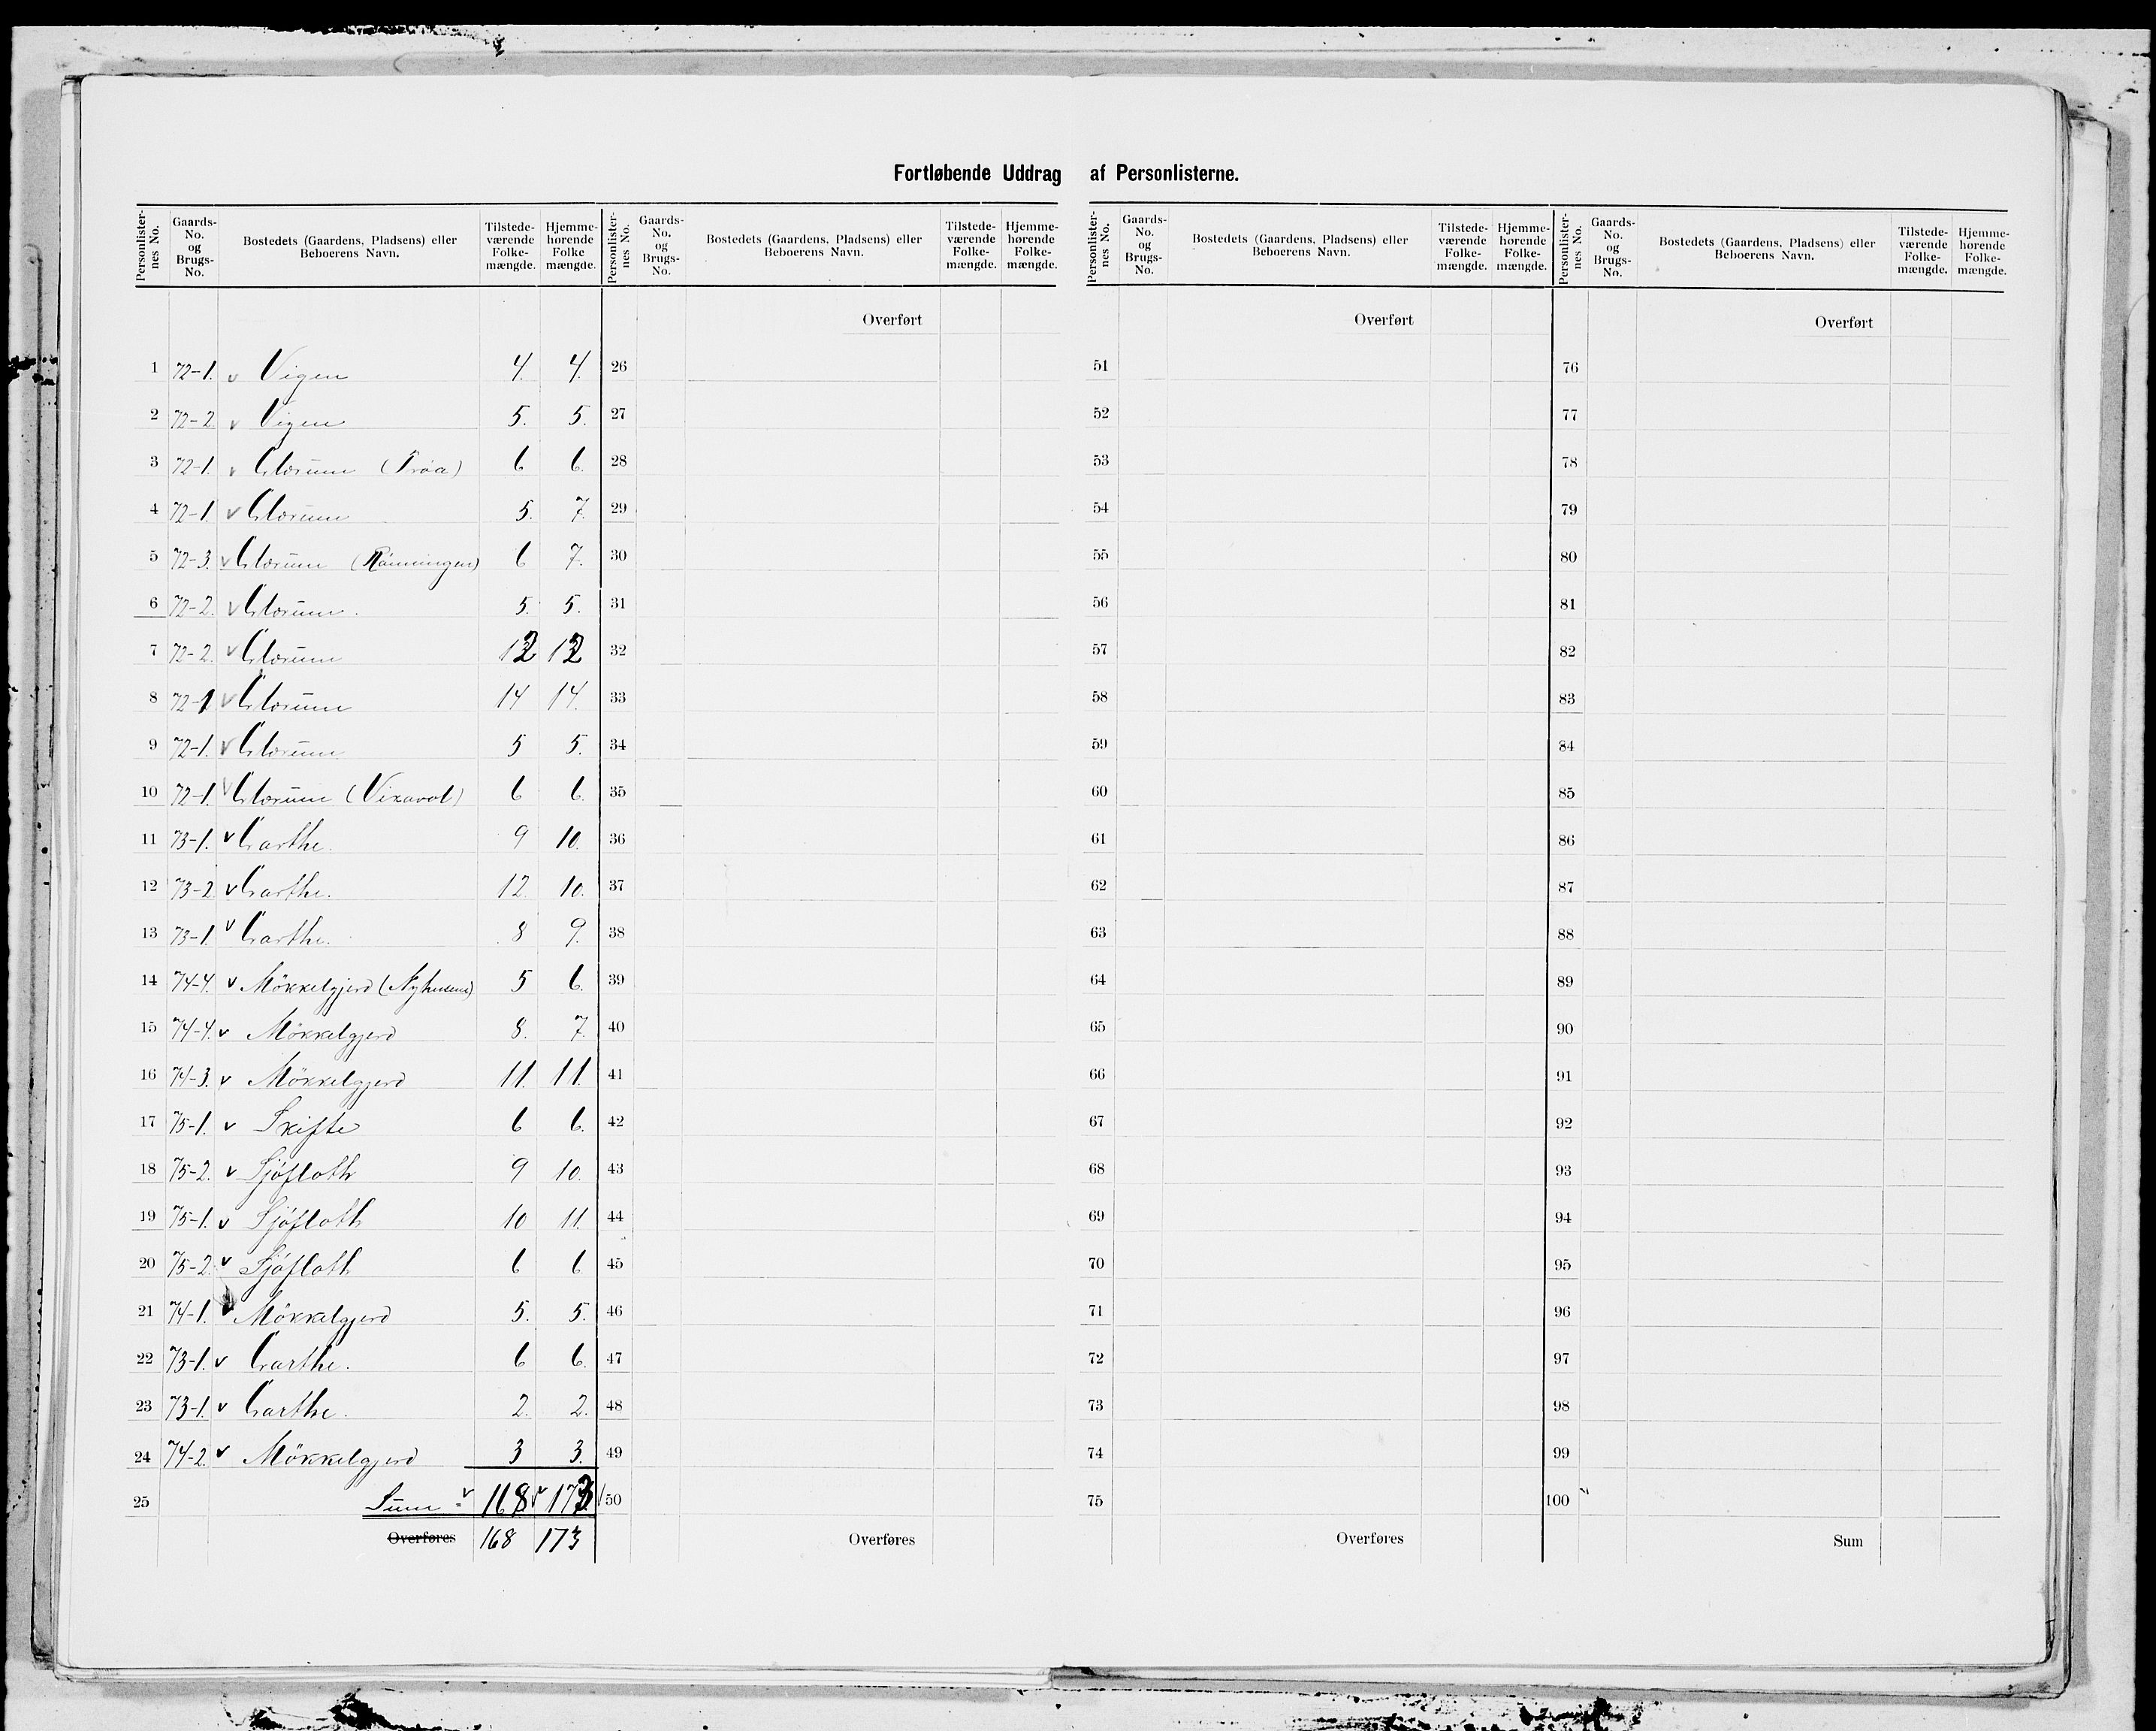 Fortløbende Uddrag af Personlisterne.
Personlisternes No. Gaards-No. og Brugs-No. Bostedets (Gaardens, Pladsens) eller Beboerens Navn. Tilstedeværende Folkemængde. Hjemmehørende Folke mængde. Personlisternes No. Gaards-No. og Brugs-No. Bostedets (Gaardens, Pladsens) eller Beboerens Navn. Tilstedeværende Folkemængde. Hjemmehørende Folkemængde. Personlisternes No. Gaards-No. og Brugs-No. Bostedets (Gaardens, Pladsens) eller Beboerens Navn. Tilstedeværende Folkemængde. Hjemmehørende Folkemængde. Personlisternes No. Gaards-No. og Brugs-No. Bostedets (Gaardens, Pladsens) eller Beboerens Navn. Tilstedeværende Folkemængde. Hjemmehørende Folkemængde.
Overført Overført Overført
1 72-1. v Vigen 4. 4. 26 51 76
2 72-2. v Vigen 5. 5. 27 52 77
3 72-1. v Glærum (Trøa) 6 6. 28 53 78
4 72-1. v Glærum 5. 7. 29 54 79
5 72-3. v Glærum (Rønningen) 6 7. 30 55 80
6 72-2. v Glærum. 5. 5. 31 56 81
7 72-2. v Glærum 12 12 32 57 82
8 72-1 v Glærum 14 14. 33 58 83
9 72-1. v Glærum 5 5. 34 59 84
10 72-1. v Glærum (Vikavol) 6 6. 35 60 85
11 73-1. v Garthe. 9 10. 36 61 86
12 73-2 v Garthe. 12. 10. 37 62 87
13 73-1. v Garthe. 8 9. 38 63 88
14 74-4. v Mökkelgjerd (Nyhusene) 5 6. 39 64 89
15 74-4. v Mökkelgjerd 8. 7. 40 65 90
16 74-3. v Mökkelgjerd 11. 11. 41 66 91
17 75-1. v Skifte 6 6. 42 67 92
18 75-2. v Sjøfloth 9 10. 43 68 93
19 75-1. v Sjøfloth 10 11. 44 69 94
20 75-2. v Sjøfloth 6 6 45 70 95
21 74-1. v Mökkelgjerd 5. 5. 46 71 96
22 73-1. v Garthe. 6 6. 47 72 97
23 73-1. v Garthe. 2. 2. 48 73 98
24 74-2. v Mökkelgjerd 3 3. 49 74 99
25 Sum = v 168 v 173 50 75 100
Overføres 168 173 Overføres Overføres Sum